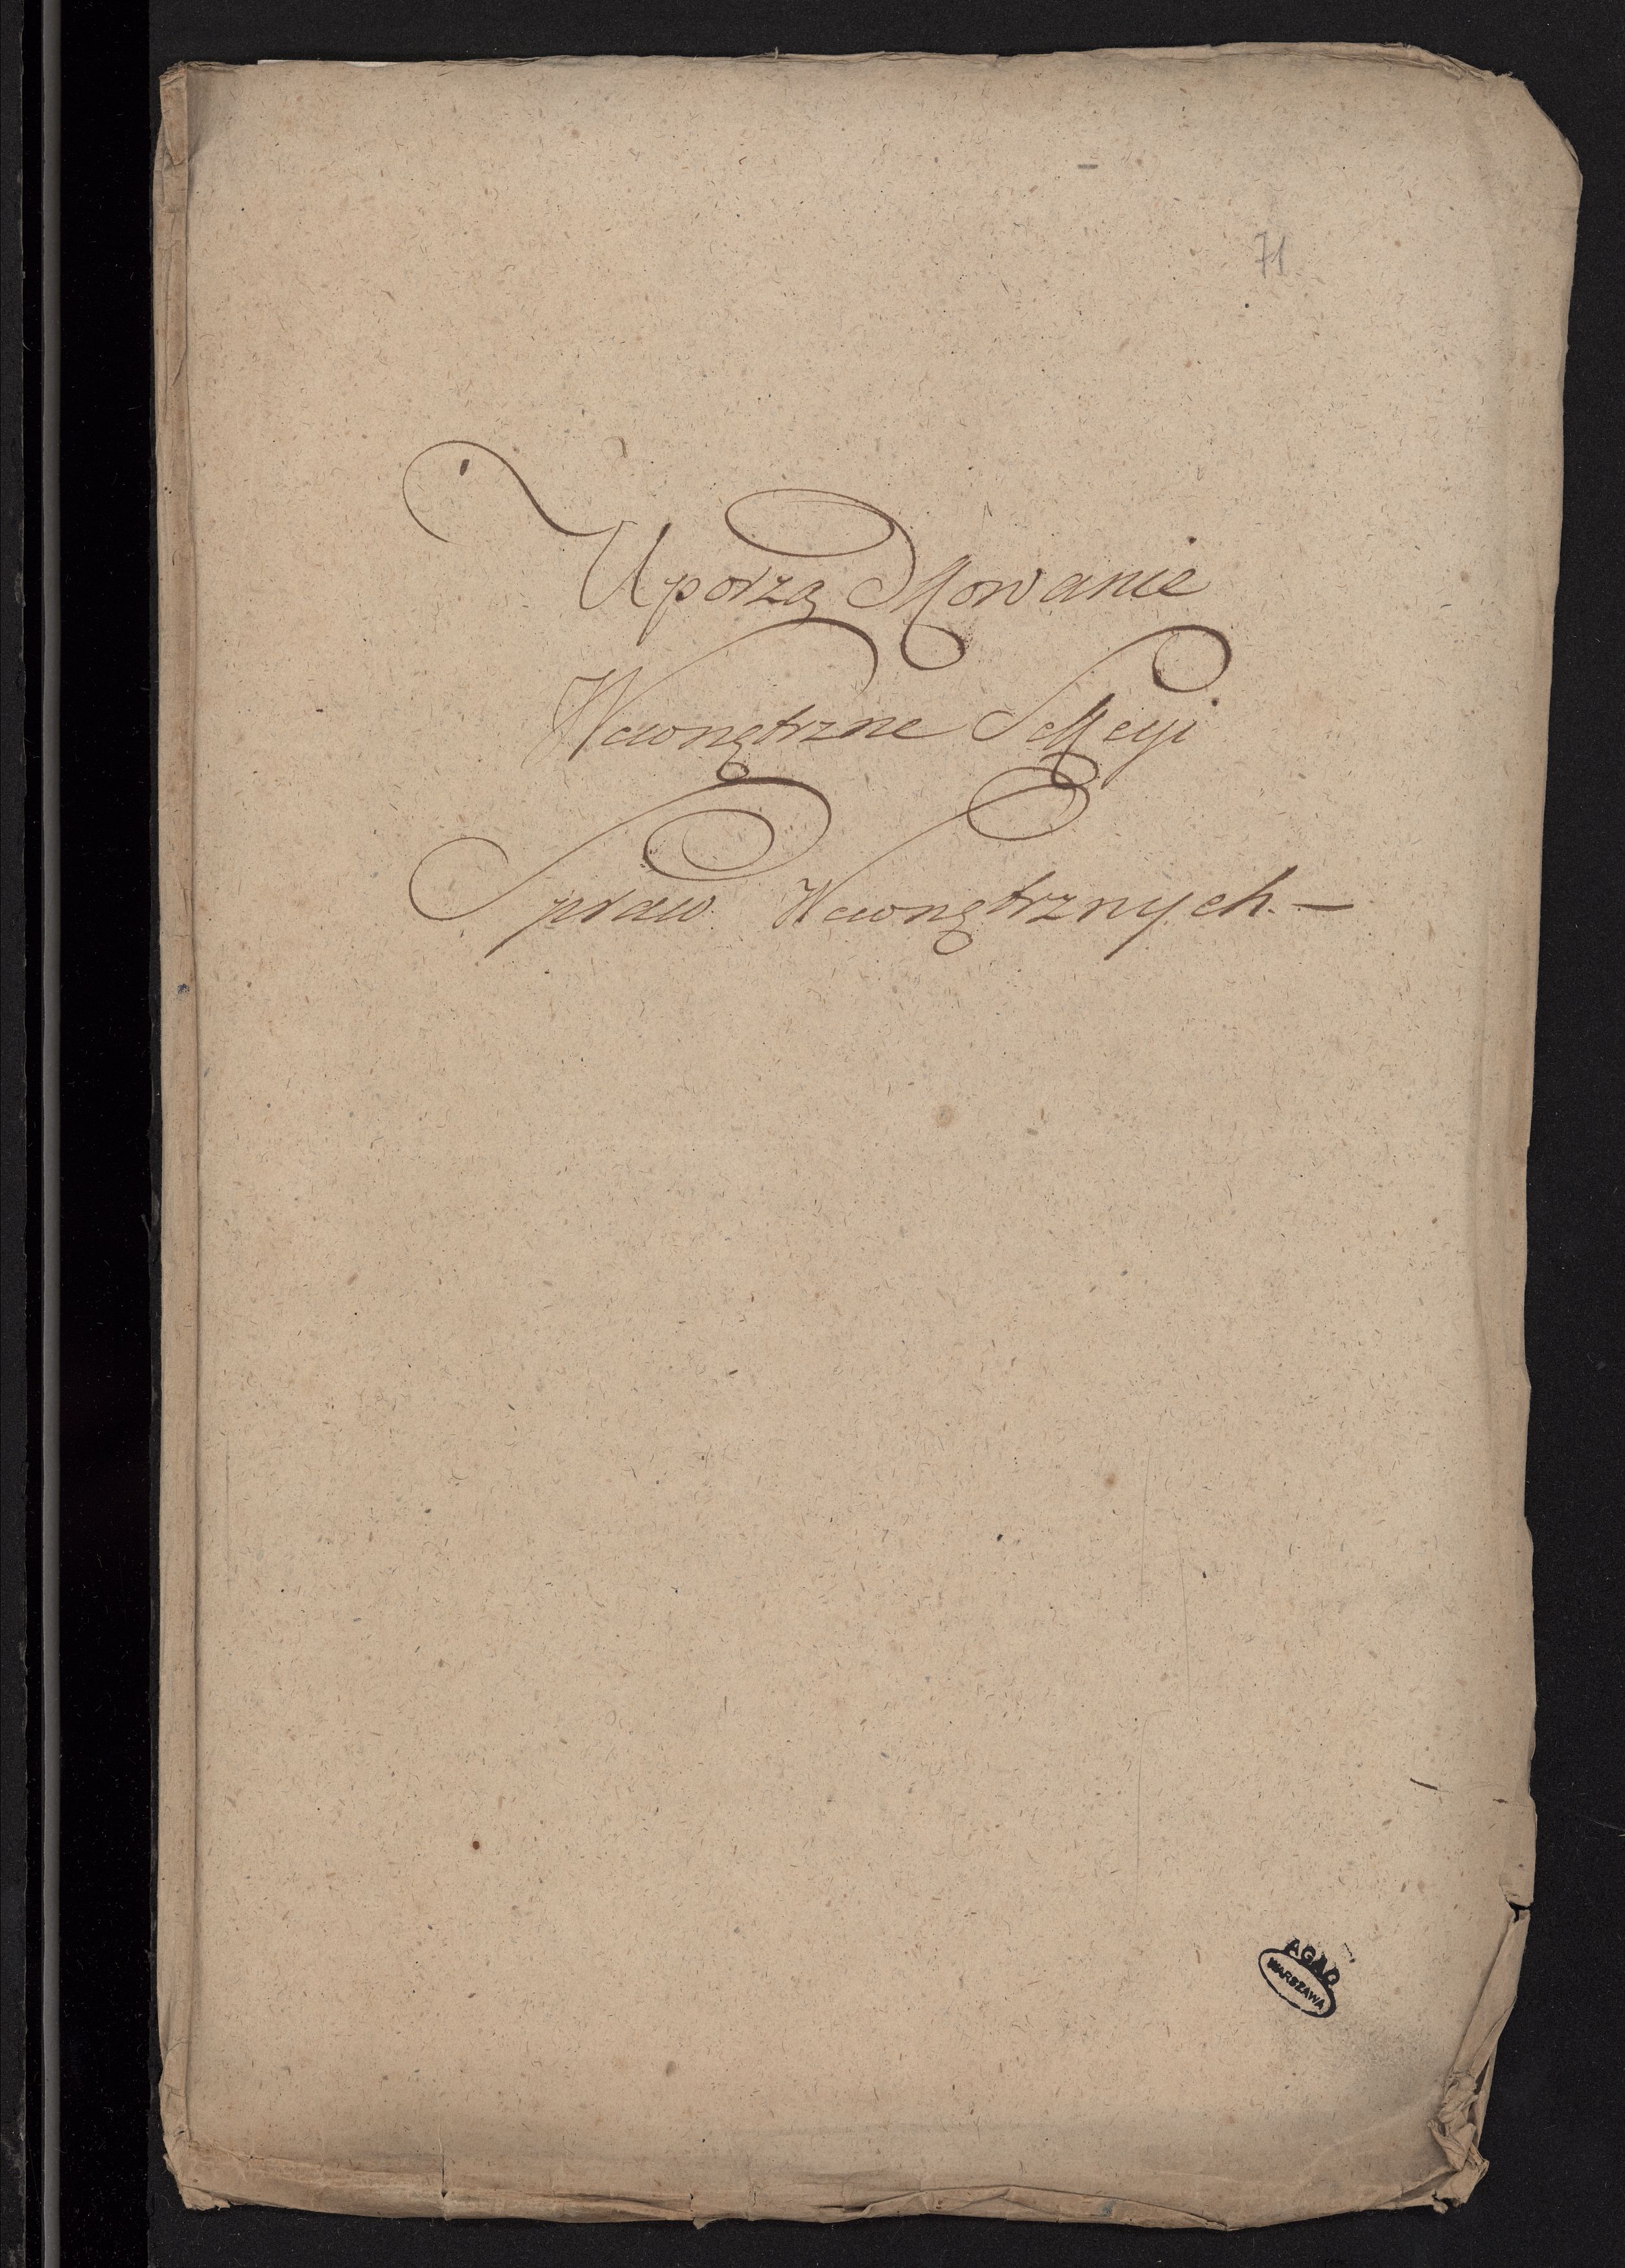 71
Uporządkowanie
Wewnętrzne Sekcyi
Spraw Wewnętrznych. —
AGAD
WARSZAWA